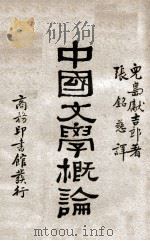 兒島獻吉郎著
張銘慈譯
中國文學概論
商務印書館發行